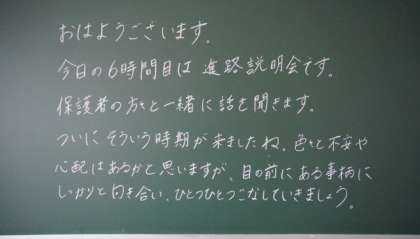 おはようございます。
今日の6時間目は進路説明会です。
保護者の方々と一緒に話を聞きます。
ついにそういう時期が来ましたね。色々と不安や
心配はあるかと思いますが、目の前にある事柄に
しっかりと向き合い、ひとつひとつこなしていきましょう。